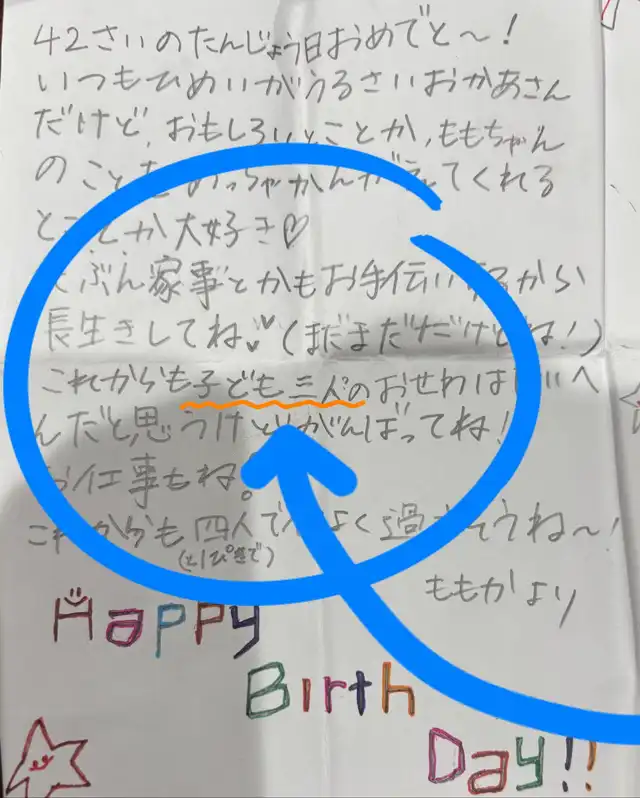 42さいのたんじょう日おめでと〜!
いつもひめいがうるさいおかあさん
だけど、おもしろいとことか、ももちゃん
のことをめっちゃかんがえてくれる
とことか大好き♡
ぶん家事とかもお手伝いするから
長生きしてね♡(まだまだだけどね!)
これからも子ども三人のおせわはへ
んだと思うけどがんばってね!
お仕事もね。
これからも四人でよく過ごそうね〜!
(と1ぴきで)
ももかより
Happy
Birth
Day!!